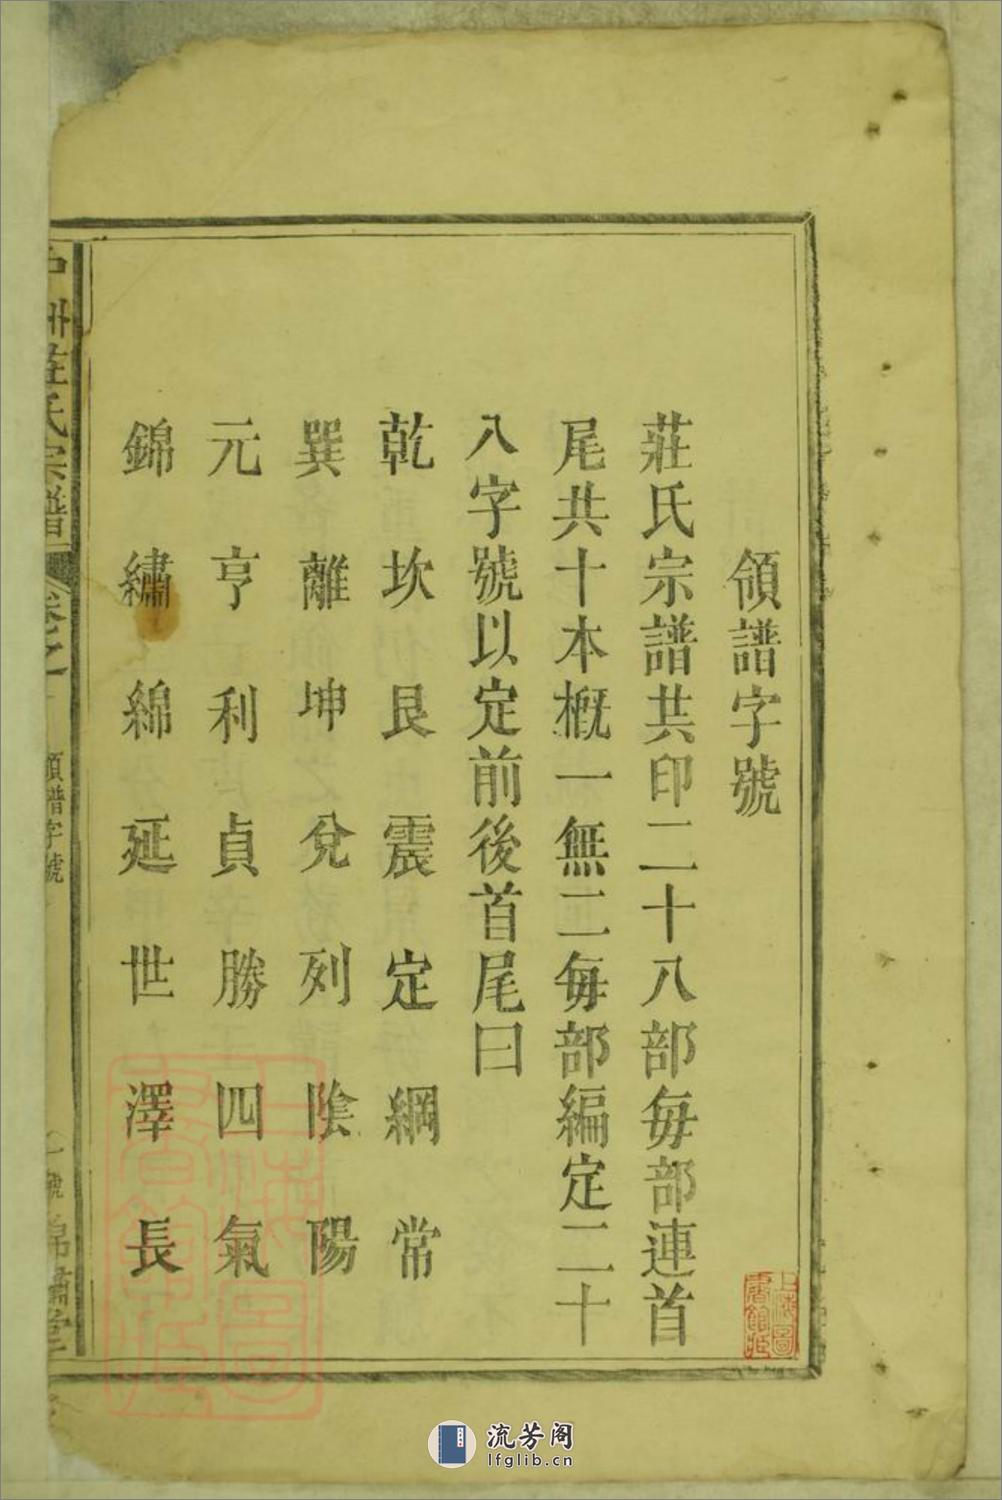 領譜字號
莊氏宗譜共印二十八部每部連首
尾共十本概一無二每部編定二十
八字號以定前後首尾曰
乾坎艮震定綱常
巽離坤兌列陰陽
元亨利貞勝四氣
錦繡綿延世澤長
莊氏宗譜
卷之
領譜字號
一號
錦繡堂
上海圖書館藏
上海圖書館藏
流芳阁
lfglib.cn